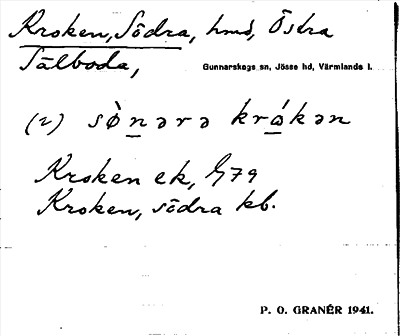 Kroken, Södra, hmd, Östra
Tälboda,
Gunnarskogs sn, Jösse hd, Värmlands l.
(2) sǿnərə krákən
Kroken ek, G79
Kroken, södra kb.
P. O. GRANÉR 1941.